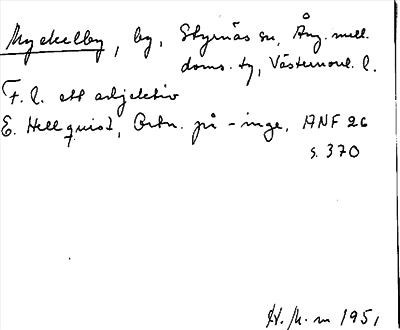 Myckelby, by, Styrnäs sn, Ång. mell.
doms. tg, Västernorrl. l.
F. l. ett adjektiv
E. Hellquist, Ortn. på -inge, ANF 26
s. 370
H. M-m 1951